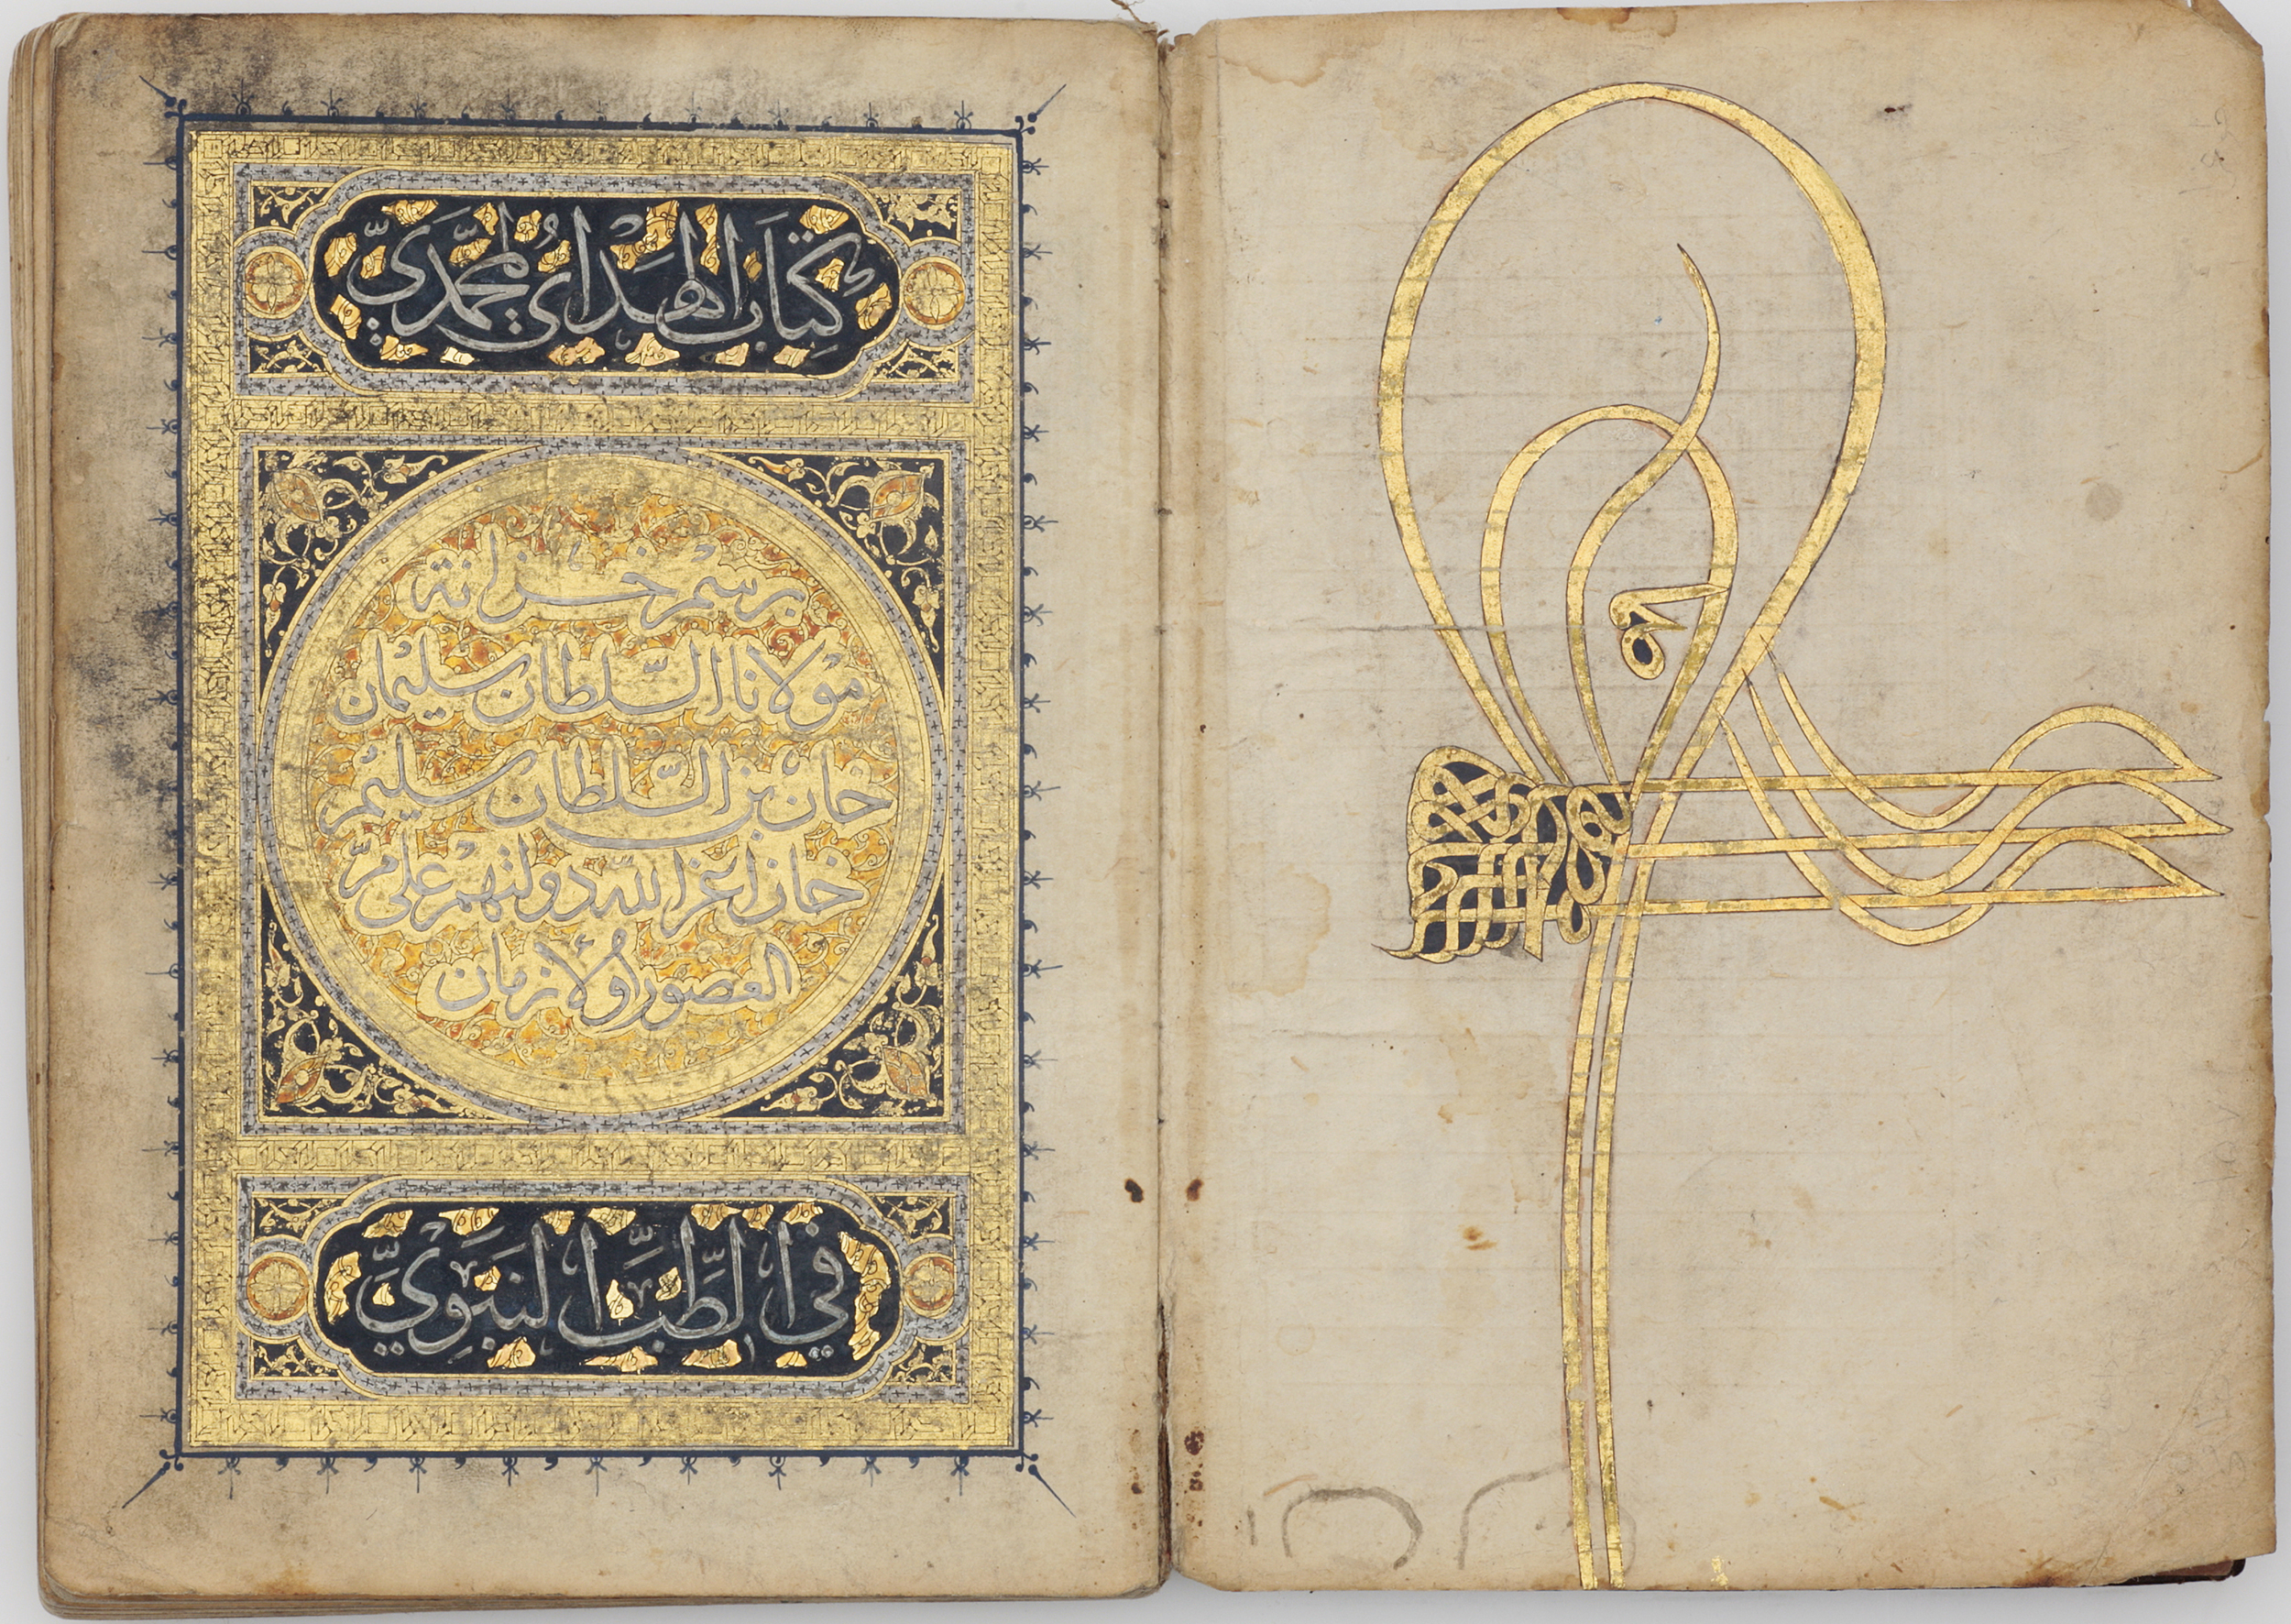 كتاب الهداي المحمدي
برسم خزانة
مولانا السلطان سليمان
خان بن السلطان سليم
خان اعز الله دولتهم على مر
العصور والازمان
في الطب النبوي